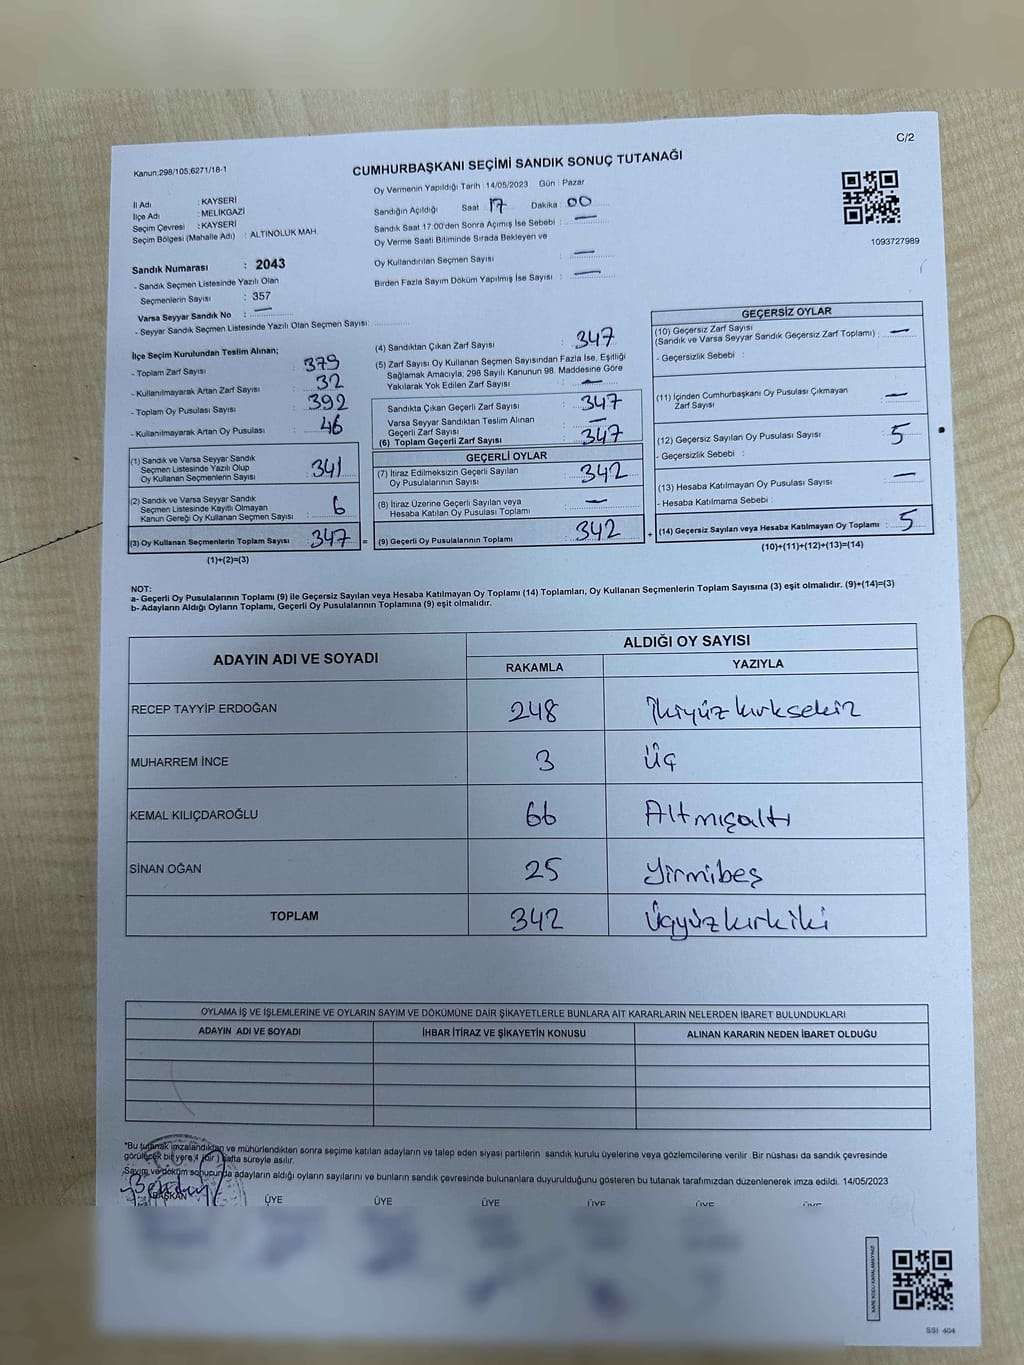 C/2
Kanun.298/105,6271/18-1
CUMHURBAŞKANI SEÇİMİ SANDIK SONUÇ TUTANAĞI
İl Adı : KAYSERİ
İlçe Adı : MELİKGAZİ
Seçim Çevresi : KAYSERİ
Seçim Bölgesi (Mahalle Adı) : ALTINOLUK MAH.
Sandık Numarası : 2043
- Sandık Seçmen Listesinde Yazılı Olan
Seçmenlerin Sayısı : 357
Varsa Seyyar Sandık No : —
- Seyyar Sandık Seçmen Listesinde Yazılı Olan Seçmen Sayısı:
Oy Vermenin Yapıldığı Tarih : 14/05/2023 Gün : Pazar
Sandığın Açıldığı Saat : 17 Dakika : 00
Sandık Saat 17:00'den Sonra Açımış İse Sebebi : —
Oy Verme Saati Bitiminde Sırada Bekleyen ve
Oy Kullandırılan Seçmen Sayısı —
Birden Fazla Sayım Döküm Yapılmış İse Sayısı : —
1093727989
İlçe Seçim Kurulundan Teslim Alınan;
- Toplam Zarf Sayısı : 379
- Kullanılmayarak Artan Zarf Sayısı : 32
- Toplam Oy Pusulası Sayısı : 392
- Kullanılmayarak Artan Oy Pusulası : 46
(1) Sandık ve Varsa Seyyar Sandık
Seçmen Listesinde Yazılı Olup
Oy Kullanan Seçmenlerin Sayısı : 341
(2) Sandık ve Varsa Seyyar Sandık
Seçmen Listesinde Kayıtlı Olmayan
Kanun Gereği Oy Kullanan Seçmen Sayısı : 6
(3) Oy Kullanan Seçmenlerin Toplam Sayısı : 347 =
(1)+(2)=(3)
(4) Sandıktan Çıkan Zarf Sayısı : 347
(5) Zarf Sayısı Oy Kullanan Seçmen Sayısından Fazla İse, Eşitliği
Sağlamak Amacıyla, 298 Sayılı Kanunun 98. Maddesine Göre
Yakılarak Yok Edilen Zarf Sayısı : —
Sandıkta Çıkan Geçerli Zarf Sayısı : 347
Varsa Seyyar Sandıktan Teslim Alınan
Geçerli Zarf Sayısı : —
(6) Toplam Geçerli Zarf Sayısı : 347
GEÇERLİ OYLAR
(7) İtiraz Edilmeksizin Geçerli Sayılan
Oy Pusulalarının Sayısı : 342
(8) İtiraz Üzerine Geçerli Sayılan veya
Hesaba Katılan Oy Pusulası Toplamı : —
(9) Geçerli Oy Pusulalarının Toplamı : 342 +
GEÇERSİZ OYLAR
(10) Geçersiz Zarf Sayısı
(Sandık ve Varsa Seyyar Sandık Geçersiz Zarf Toplamı) : —
- Geçersizlik Sebebi :
(11) İçinden Cumhurbaşkanı Oy Pusulası Çıkmayan
Zarf Sayısı : —
(12) Geçersiz Sayılan Oy Pusulası Sayısı : 5
- Geçersizlik Sebebi :
(13) Hesaba Katılmayan Oy Pusulası Sayısı : —
- Hesaba Katılmama Sebebi :
(14) Geçersiz Sayılan veya Hesaba Katılmayan Oy Toplamı : 5
(10)+(11)+(12)+(13)=(14)
NOT:
a- Geçerli Oy Pusulalarının Toplamı (9) ile Geçersiz Sayılan veya Hesaba Katılmayan Oy Toplamı (14) Toplamları, Oy Kullanan Seçmenlerin Toplam Sayısına (3) eşit olmalıdır. (9)+(14)=(3)
b- Adayların Aldığı Oyların Toplamı, Geçerli Oy Pusulalarının Toplamına (9) eşit olmalıdır.
ADAYIN ADI VE SOYADI ALDIĞI OY SAYISI
RAKAMLA YAZIYLA
RECEP TAYYİP ERDOĞAN 248 İkiyüzkırksekiz
MUHARREM İNCE 3 Üç
KEMAL KILIÇDAROĞLU 66 Altmışaltı
SİNAN OĞAN 25 Yirmibeş
TOPLAM 342 Üçyüzkırkiki
OYLAMA İŞ VE İŞLEMLERİNE VE OYLARIN SAYIM VE DÖKÜMÜNE DAİR ŞİKAYETLERLE BUNLARA AİT KARARLARIN NELERDEN İBARET BULUNDUKLARI
ADAYIN ADI VE SOYADI İHBAR İTİRAZ VE ŞİKAYETİN KONUSU ALINAN KARARIN NEDEN İBARET OLDUĞU
"Bu tutanak imzalandıktan ve mühürlendikten sonra seçime katılan adayların ve talep eden siyasi partilerin sandık kurulu üyelerine veya gözlemcilerine verilir .Bir nüshası da sandık çevresinde
görülecek bir yere 1 (bir ) hafta süreyle asılır.
Sayım ve döküm sonucunda adayların aldığı oyların sayılarını ve bunların sandık çevresinde bulunanlara duyurulduğunu gösteren bu tutanak tarafımızdan düzenlenerek imza edildi. 14/05/2023
BAŞKAN ÜYE ÜYE ÜYE ÜYE ÜYE ÜYE
SSI 404